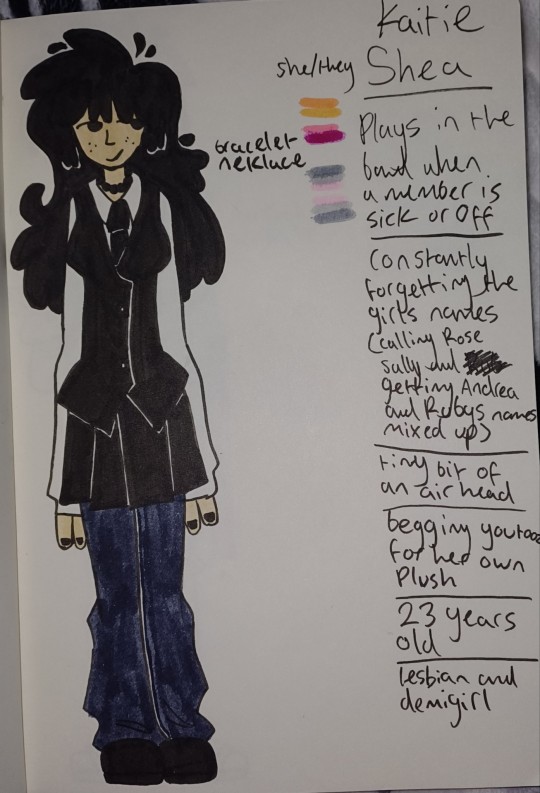 Kaitie
Shea
she/they
bracelet
necklace
Plays in the
band when
a member is
sick or off
constantly
forgetting the
girls names
(calling Rose
sally and
getting Andrea
and Rubys names
mixed up)
tiny bit of
an air head
begging youtooz
for her own
Plush
23 years
old
lesbian and
demigirl